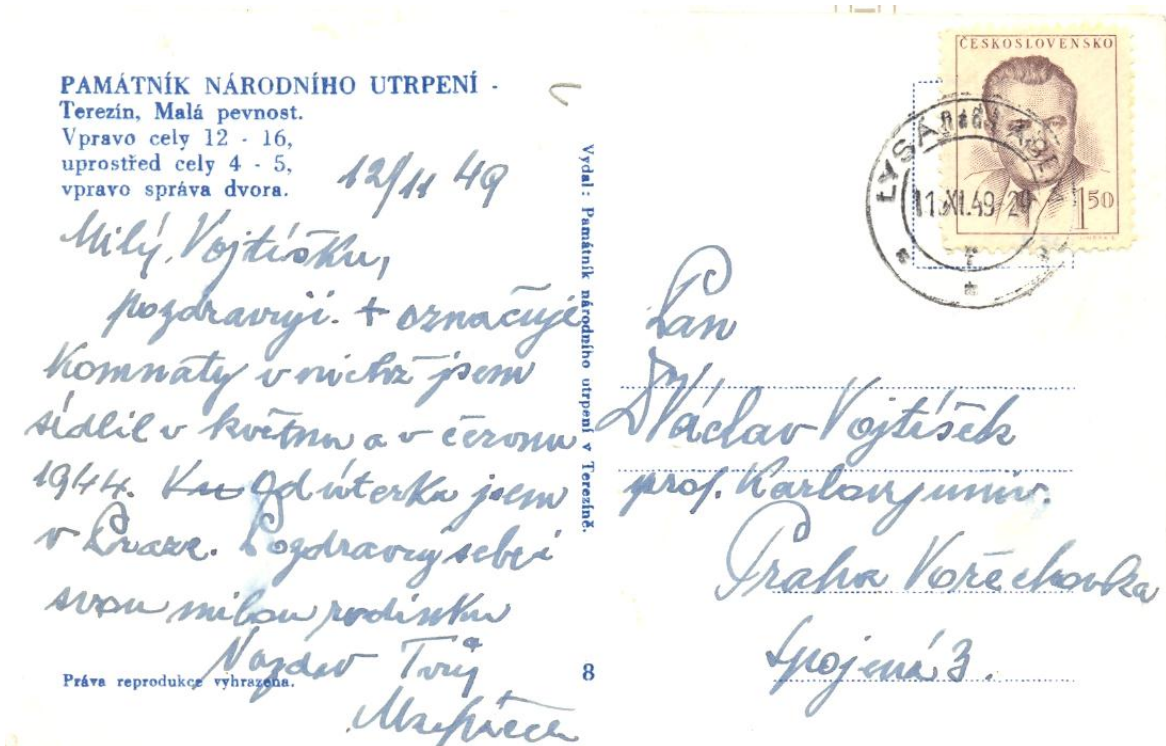 PAMÁTNÍK NÁRODNÍHO UTRPENÍ -
Terezín, Malá pevnost.
Vpravo cely 12 - 16,
uprostřed cely 4 - 5,
vpravo správa dvora.
12/11 49
Milý Vojtíšku,
pozdravuji. + označuje
komnaty v nichž jsem
sídlil v květnu a v červnu
1944. Od úterka jsem
v Praze. Pozdravuj sebe i
svou milou rodinku
Nazdar Tvůj
Práva reprodukce vyhrazena.
8
Vydal: Památník národního utrpení v Terezíně.
ČESKOSLOVENSKO
1 50
LYSÁ NAD LAB.
11.XI.49-2
Pan
Dr Václav Vojtíšek
prof. Karlovy univ.
Praha Vořechovka
Spojená 3.